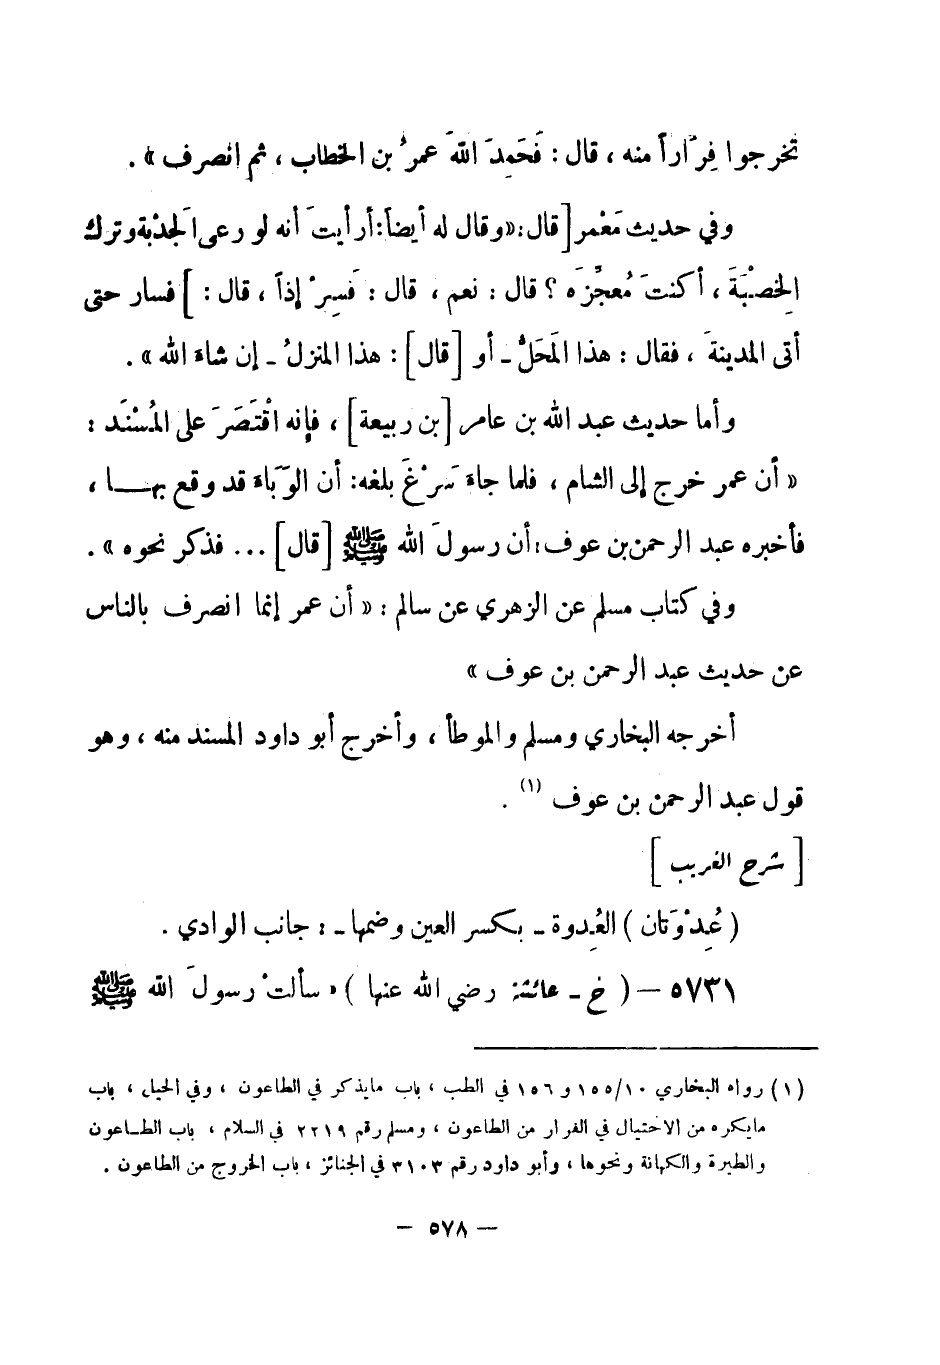 تخرجوا فِرَاراً منه ، قال : فَحَمِدَ اللهَ عمرُ بن الخطاب ، ثم انصرف » .
وفي حديث مَعْمر [ قال : « وقال له أيضاً : أرأيتَ أنه لو رعى الجَدْبة وترك
الخِصْبَةَ ، أكنتَ مُعجِّزَه ؟ قال : نعم ، قال : فَسِرْ إذاً ، قال : ] فسار حتى
أتى المدينةَ ، فقال : هذا المَحَلُّ ـ أو [ قال ] : هذا المنزلُ ـ إن شاءَ الله » .
وأما حديث عبد الله بن عامر [ بن ربيعة ] ، فإنه اقْتَصَرَ على المُسْنَد :
« أن عمر خرج إلى الشام ، فلما جاءَ سَرْغَ بلغه : أن الوَباءَ قد وقع بهـــا ،
فأخبره عبد الرحمن بن عوف : أن رسولَ الله ﷺ [ قال ] ... فذكر نحوه » .
وفي كتاب مسلم عن الزهري عن سالم : « أن عمر إنما انصرف بالناس
عن حديث عبد الرحمن بن عوف »
أخرجه البخاري ومسلم والموطأ ، وأخرج أبو داود المسند منه ، وهو
قول عبد الرحمن بن عوف (١) .
[ شرح الغريب ]
( عُِدْوَتان ) العُِدوة ـ بكسر العين وضمها ـ : جانب الوادي .
٥٧٣١ — ( خ ـ عائشة رضي الله عنها ) « سألتْ رسولَ الله ﷺ
(١) رواه البخاري ١٠/١٥٥ و ١٥٦ في الطب ، باب مايذكر في الطاعون ، وفي الحيل ، باب
مايكره من الاحتيال في الفرار من الطاعون ، ومسلم رقم ٢٢١٩ في السلام ، باب الطـاعون
والطيرة والكهانة ونحوها ، وأبو داود رقم ٣١٠٣ في الجنائز ، باب الخروج من الطاعون .
— ٥٧٨ —